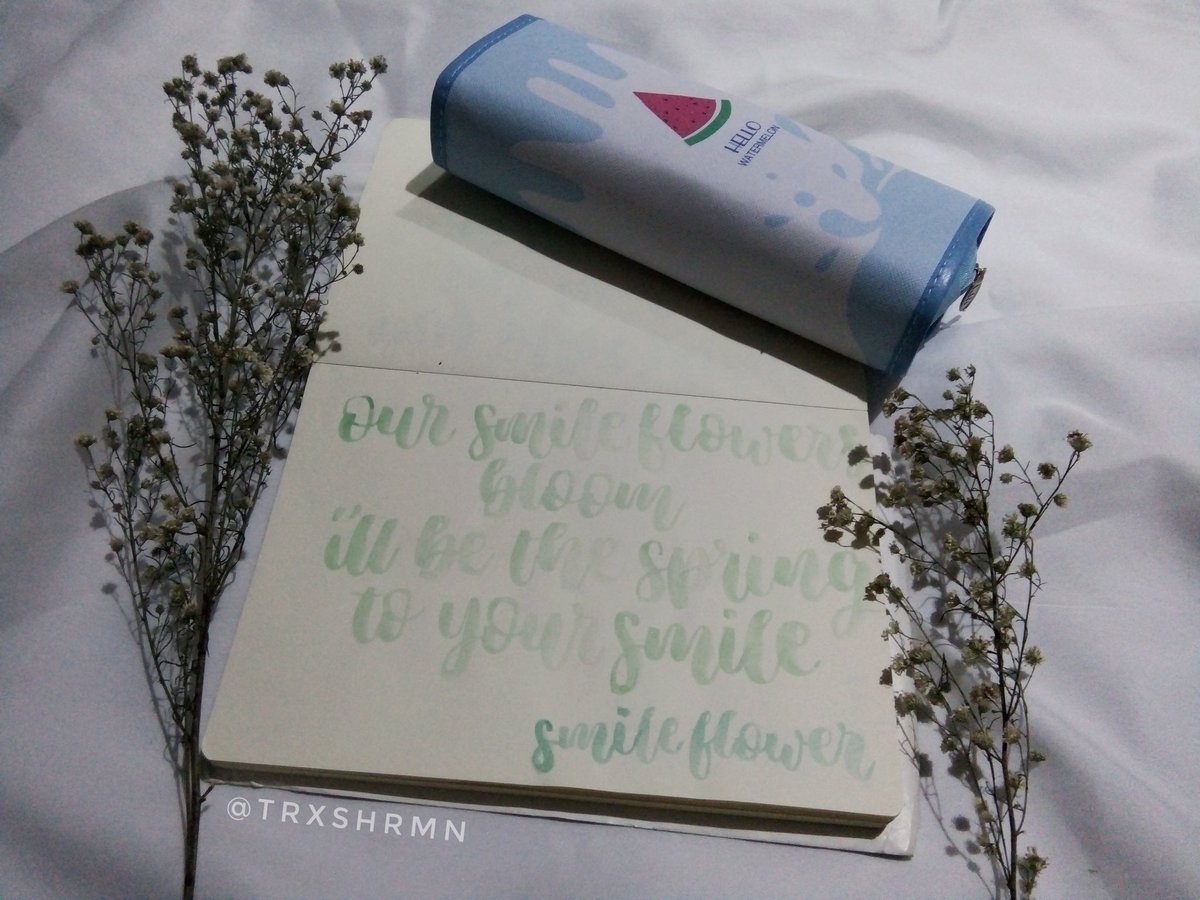 HELLO
WATERMELON
our smile flowers
bloom
"i'll be the spring
to your smile
smile flower
@TRXSHRMN